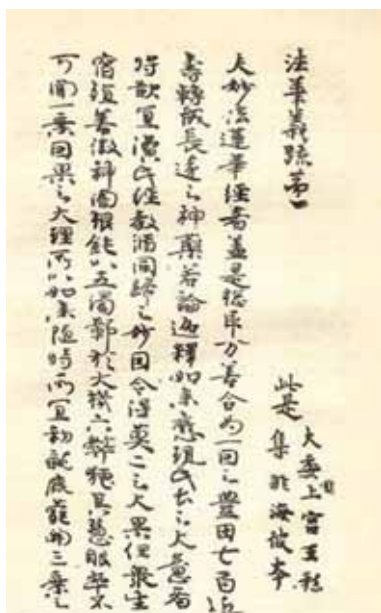 法華義疏第一
此是
大委国上宮王私
集非海彼本
夫妙法蓮華經者蓋是惣取万善合為一因之豊田七百近
壽轉成長遠之神藥若論迦釋如來應現此土之大意者
將欲宜演此經教脩同歸之妙因令得莫二之大果但衆生
宿殖善微神闇根鈍以五濁鄣於大機六弊掩其慧眼卒不
可聞一乘因果之大理所以如來隨時所宜初就鹿苑開三乘之